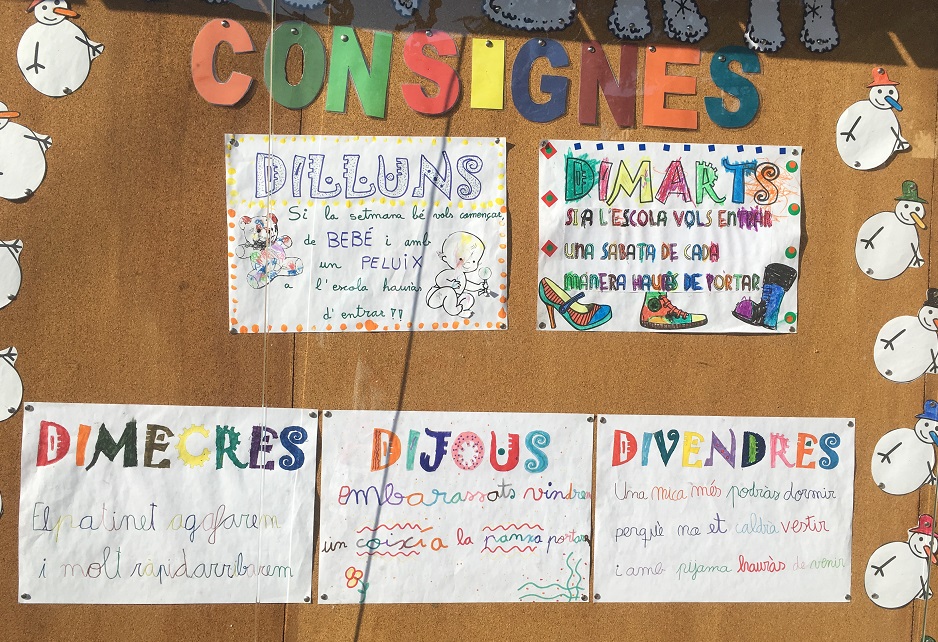 CONSIGNES
DILLUNS
Si la setmana bé vols començar,
de BEBÉ i amb
un PELUIX
a l'escola hauràs
d'entrar!!
DIMARTS
SI A L'ESCOLA VOLS ENTRAR
UNA SABATA DE CADA
MANERA HAURÀS DE PORTAR
DIMECRES
El patinet agafarem
i molt ràpid arribarem
DIJOUS
embarassats vindrem
un coixí a la panxa portarem
DIVENDRES
Una mica més podràs dormir
perquè no et caldrà vestir
i amb pijama hauràs de venir